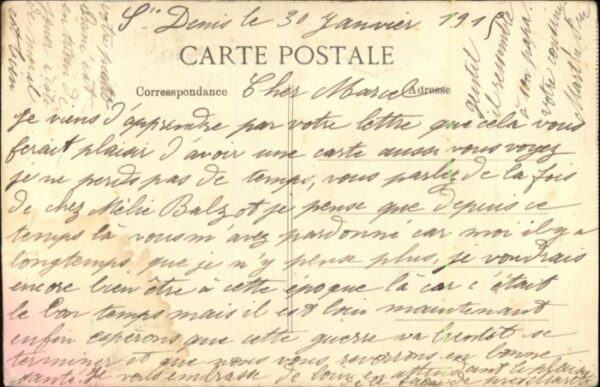 St Denis le 30 Janvier 1915
CARTE POSTALE
Correspondance
Adresse
Cher Marcel
Je viens d'apprendre par votre lettre que cela vous
ferait plaisir d'avoir une carte aussi vous voyez
je ne perds pas de temps, vous parlez de la fois
de chez Mélie Balzot je pense que depuis ce
temps là vous m'avez pardonné car moi il y a
longtemps que je n'y pense plus, je voudrais
encore bien être à cette époque là car c'était
le bon temps mais il est loin maintenant
enfin espérons que cette guerre va bientôt se
terminer et que nous vous reverrons en bonne
santé. Je vous embrasse de loin en attendant
votre
est bien
gentil
il ressemble
à son papa
votre cousine
Marthe